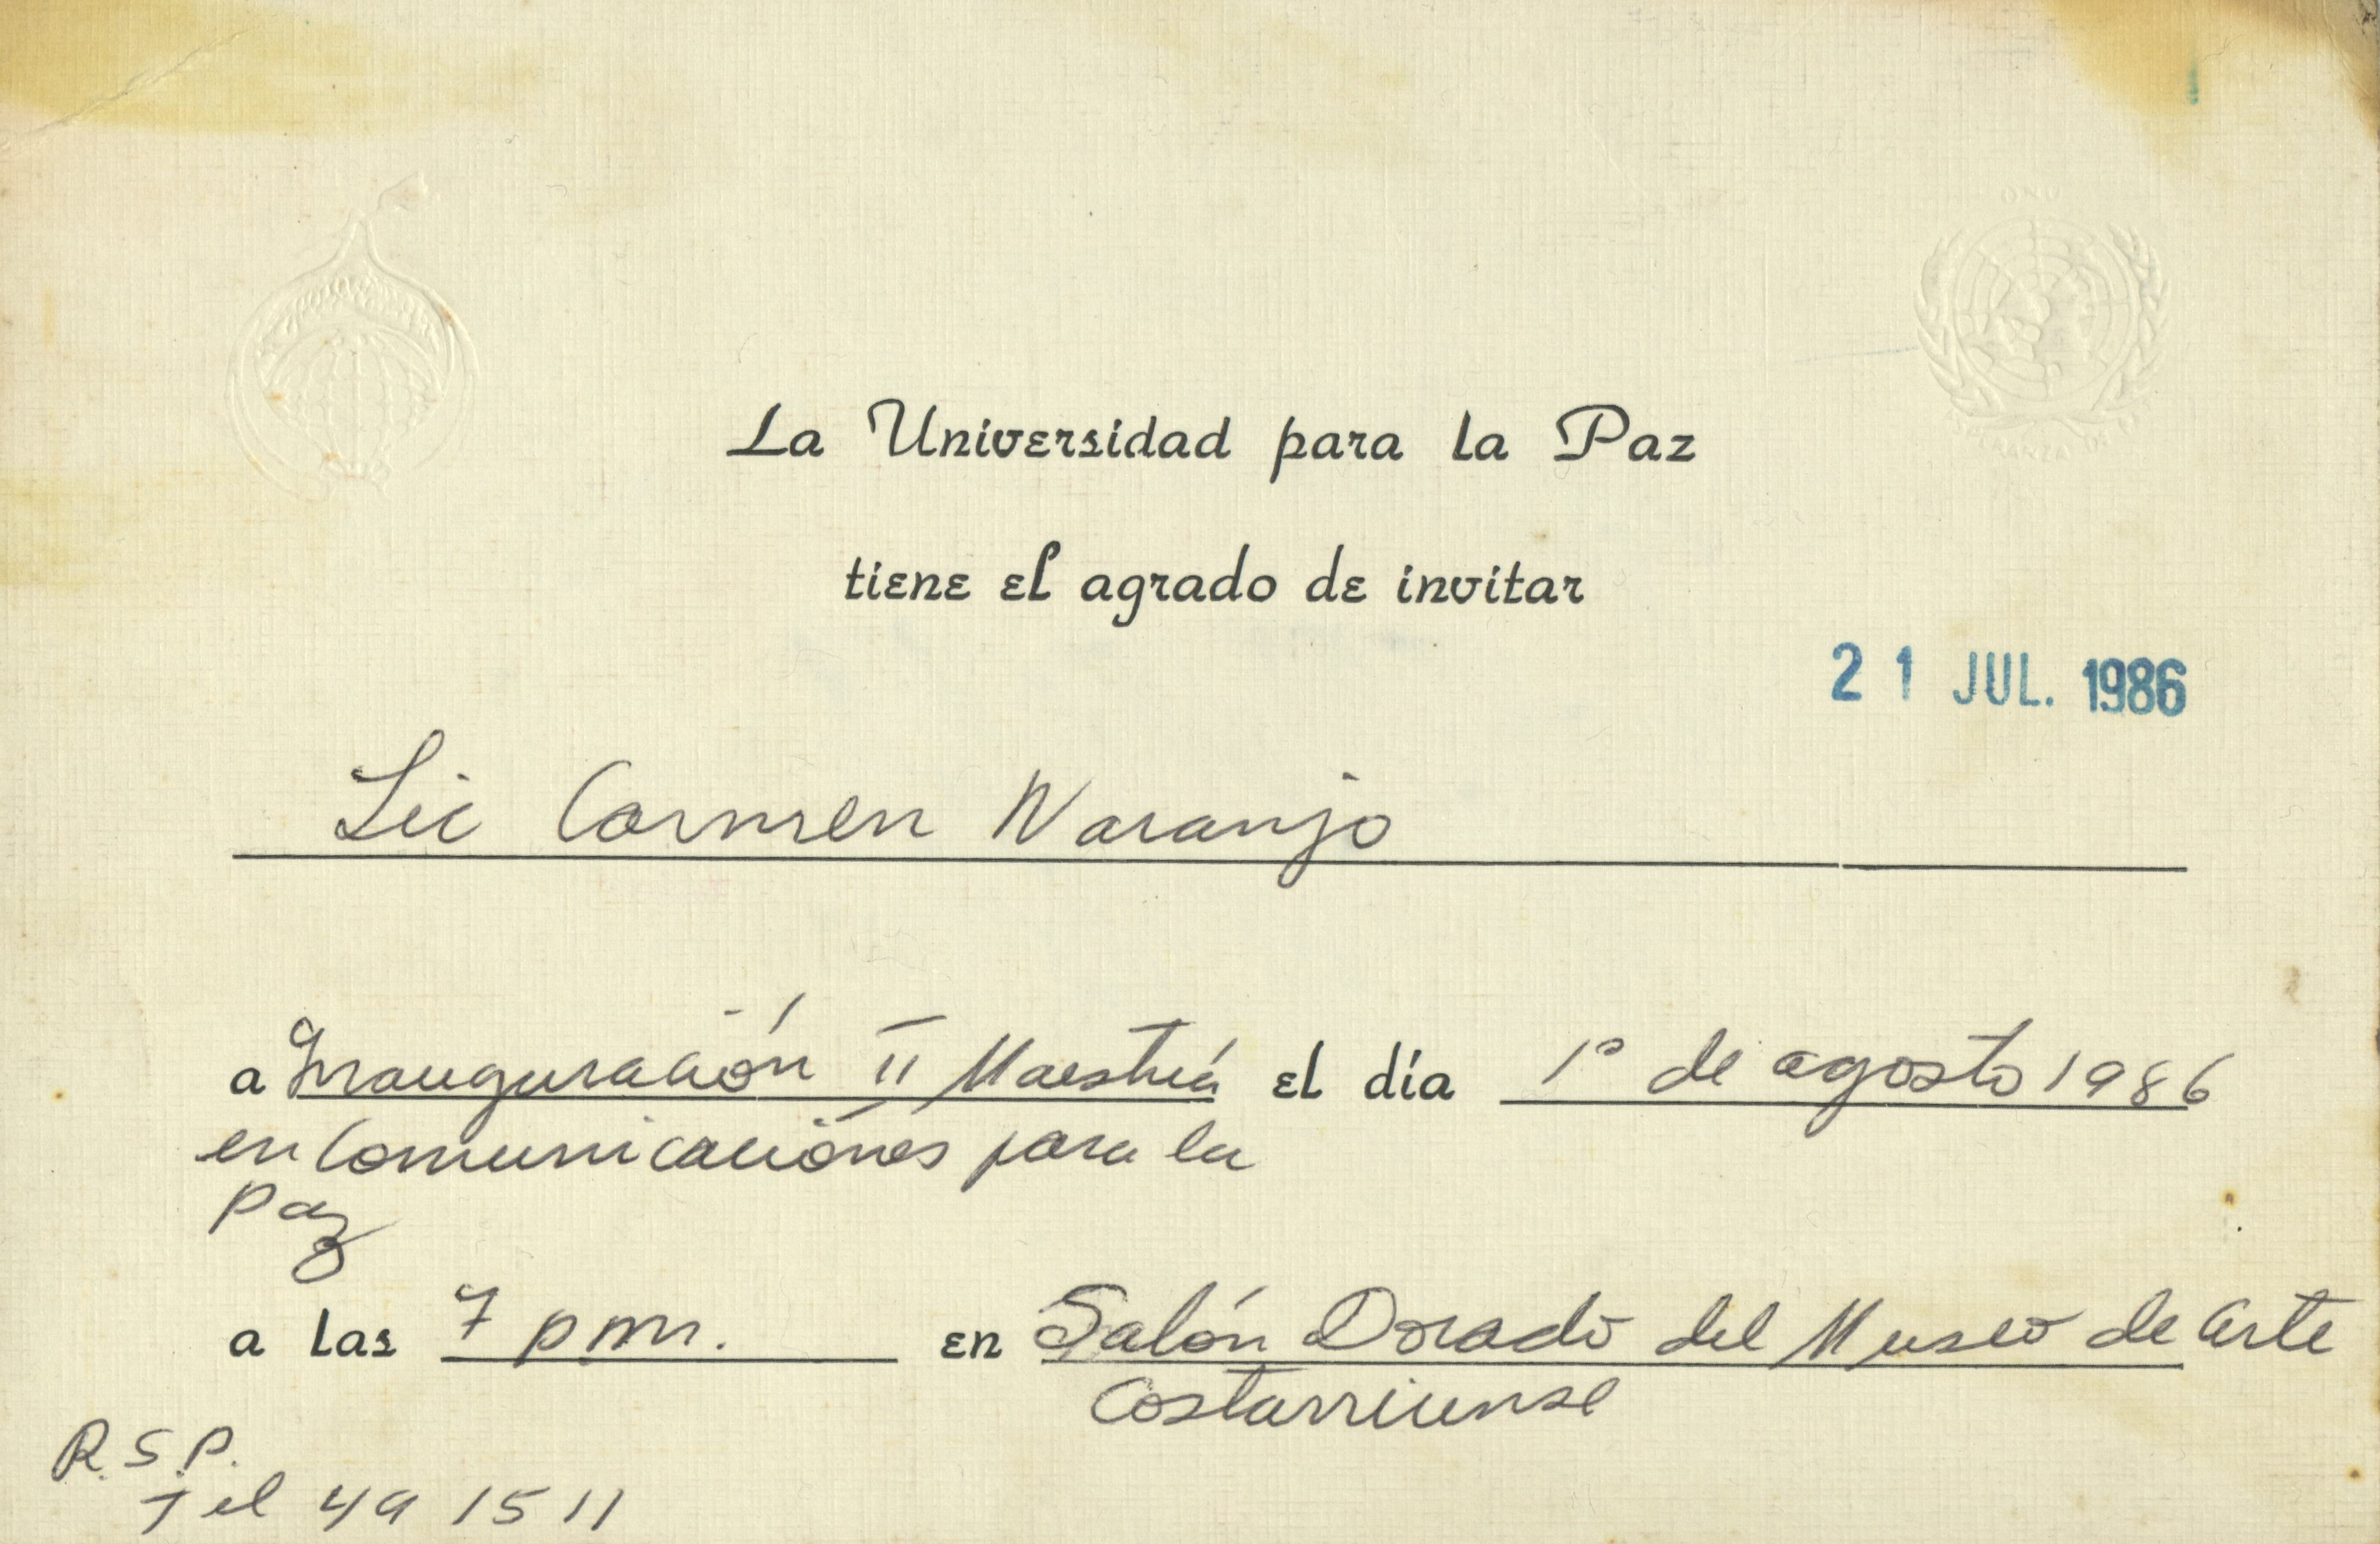 La Universidad para la Paz
tiene el agrado de invitar
21 JUL. 1986
Lic Carmen Naranjo
a Inauguración II Maestría el día 1º de agosto 1986
en Comunicaciones para la
Paz
a las 7 pm. en Salón Dorado del Museo de Arte
Costarricense
R.S.P.
Tel 49 15 11